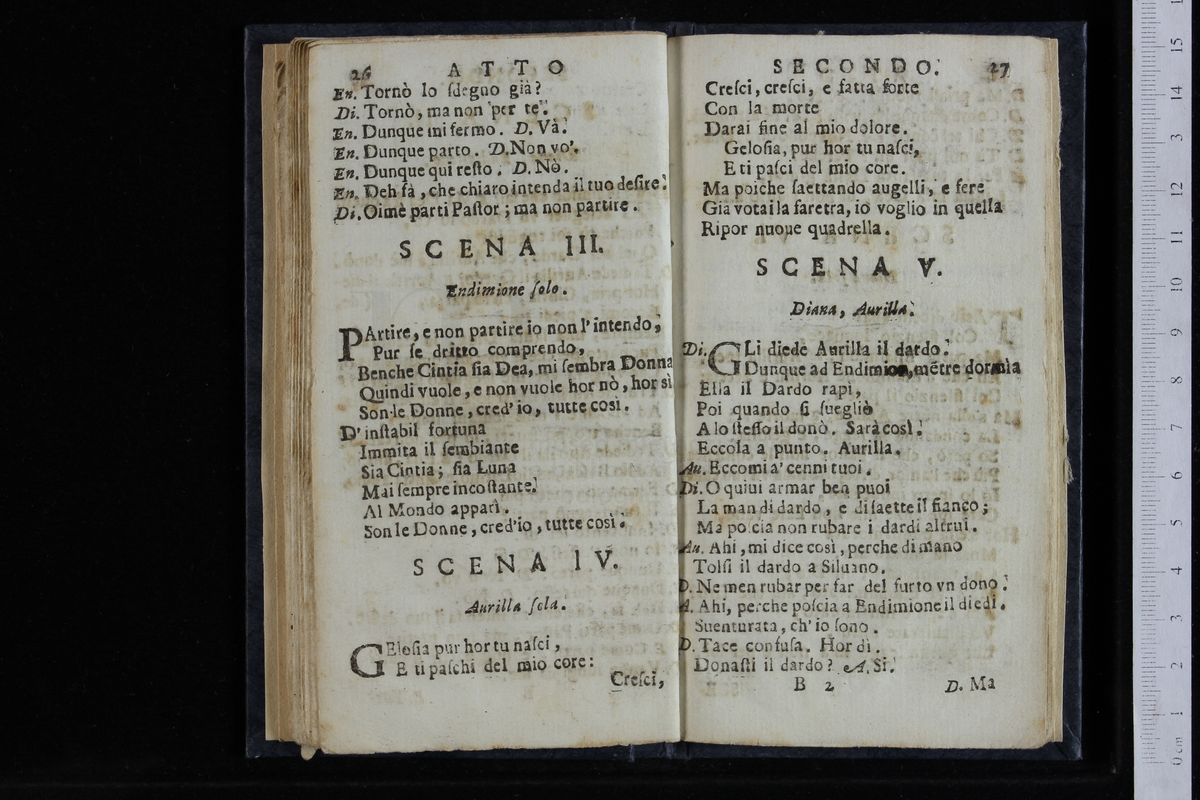 26 ATTO
En. Tornò lo sdegno già?
Di. Tornò, ma non per te.
En. Dunque mi fermo. D. Và.
En. Dunque parto. D. Non vo'.
En. Dunque qui resto. D. Nò.
En. Deh fà, che chiaro intenda il tuo desire.
Di. Oimè parti Pastor; ma non partire.
SCENA III.
Endimione solo.
PArtire, e non partire io non l'intendo,
Pur se dritto comprendo,
Benche Cintia sia Dea, mi sembra Donna
Quindi vuole, e non vuole hor nò, hor sì
Son le Donne, cred' io, tutte così.
D' instabil fortuna
Immita il sembiante
Sia Cintia; sia Luna
Mai sempre incostante.
Al Mondo apparì.
Son le Donne, cred'io, tutte così.
SCENA IV.
Aurilla sola.
GElosia pur hor tu nasci,
E ti paschi del mio core:
Cresci,
SECONDO. 27
Cresci, cresci, e fatta forte
Con la morte
Darai fine al mio dolore.
Gelosia, pur hor tu nasci,
E ti pasci del mio core.
Ma poiche saettando augelli, e fere
Già votai la faretra, io voglio in quella
Ripor nuoue quadrella.
SCENA V.
Diana, Aurilla.
Di. GLi diede Aurilla il dardo.
Dunque ad Endimion, mẽtre dormia
Ella il Dardo rapì,
Poi quando si suegliò
A lo stesso il donò. Sarà così.
Eccola a punto. Aurilla.
Au. Eccomi a' cenni tuoi.
Di. O quiui armar ben puoi
La man di dardo, e di saette il fianco;
Ma poscia non rubare i dardi altrui.
Au. Ahi, mi dice così, perche di mano
Tolsi il dardo a Siluano.
D. Ne men rubar per far del furto vn dono.
A. Ahi, perche poscia a Endimione il diedi.
Suenturata, ch' io sono.
D. Tace confusa. Hor dì.
Donasti il dardo? A. Sì.
B 2 D. Ma